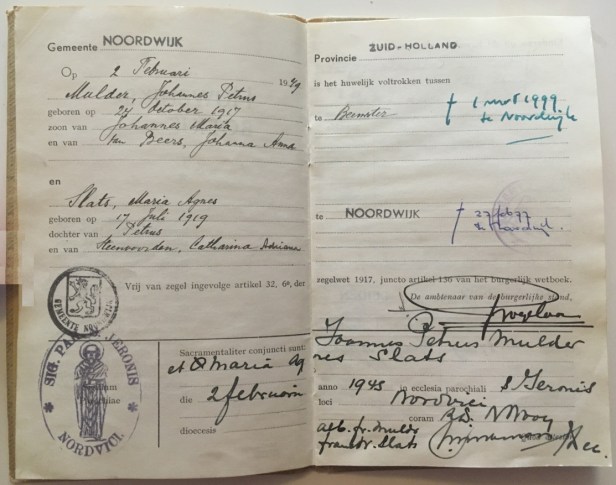 Gemeente NOORDWIJK
Op 2 Februari 1949
Mulder, Johannes Petrus
geboren op 24 October 1917
zoon van Johannes Maria
en van van Beers, Johanna Anna
en
Slats, Maria Agnes
geboren op 17 Juli 1919
dochter van Petrus
en van Steenvoorden, Catharina Adriana
Vrij van zegel ingevolge artikel 32, 6e, der
GEMEENTE NOORDWIJK
SIG. PAR. JERONIS
NORDVICI.
Sacramentaliter conjuncti sunt:
et Maria Ag
die 2 februarii
dioecesis
Provincie ZUID-HOLLAND
is het huwelijk voltrokken tussen
te Beemster
† 1 1999
te Noordwijk
te NOORDWIJK
†
zegelwet 1917, juncto artikel 136 van het burgerlijk wetboek.
De ambtenaar van de burgerlijke stand,
Joannes Petrus Mulder
nes Slats
anno 1945 in ecclesia parochiali S Jeronis
loci
coram
Mulder
Slats